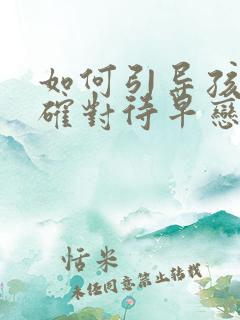 如何引导孩
確對待早戀
恬米
未经同意禁止转载